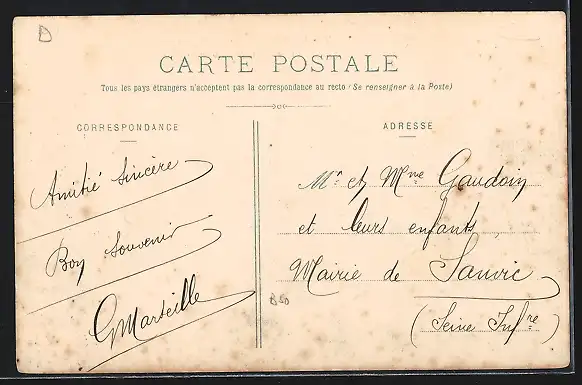 D
CARTE POSTALE
Tous les pays étrangers n'acceptent pas la correspondance au recto (Se renseigner à la Poste)
CORRESPONDANCE
Amitié Sincère
Bon Souvenir
GMarseille
ADRESSE
Mr et Mme Gaudoin
et leurs enfants,
Mairie de Sanvic
(Seine Infre)